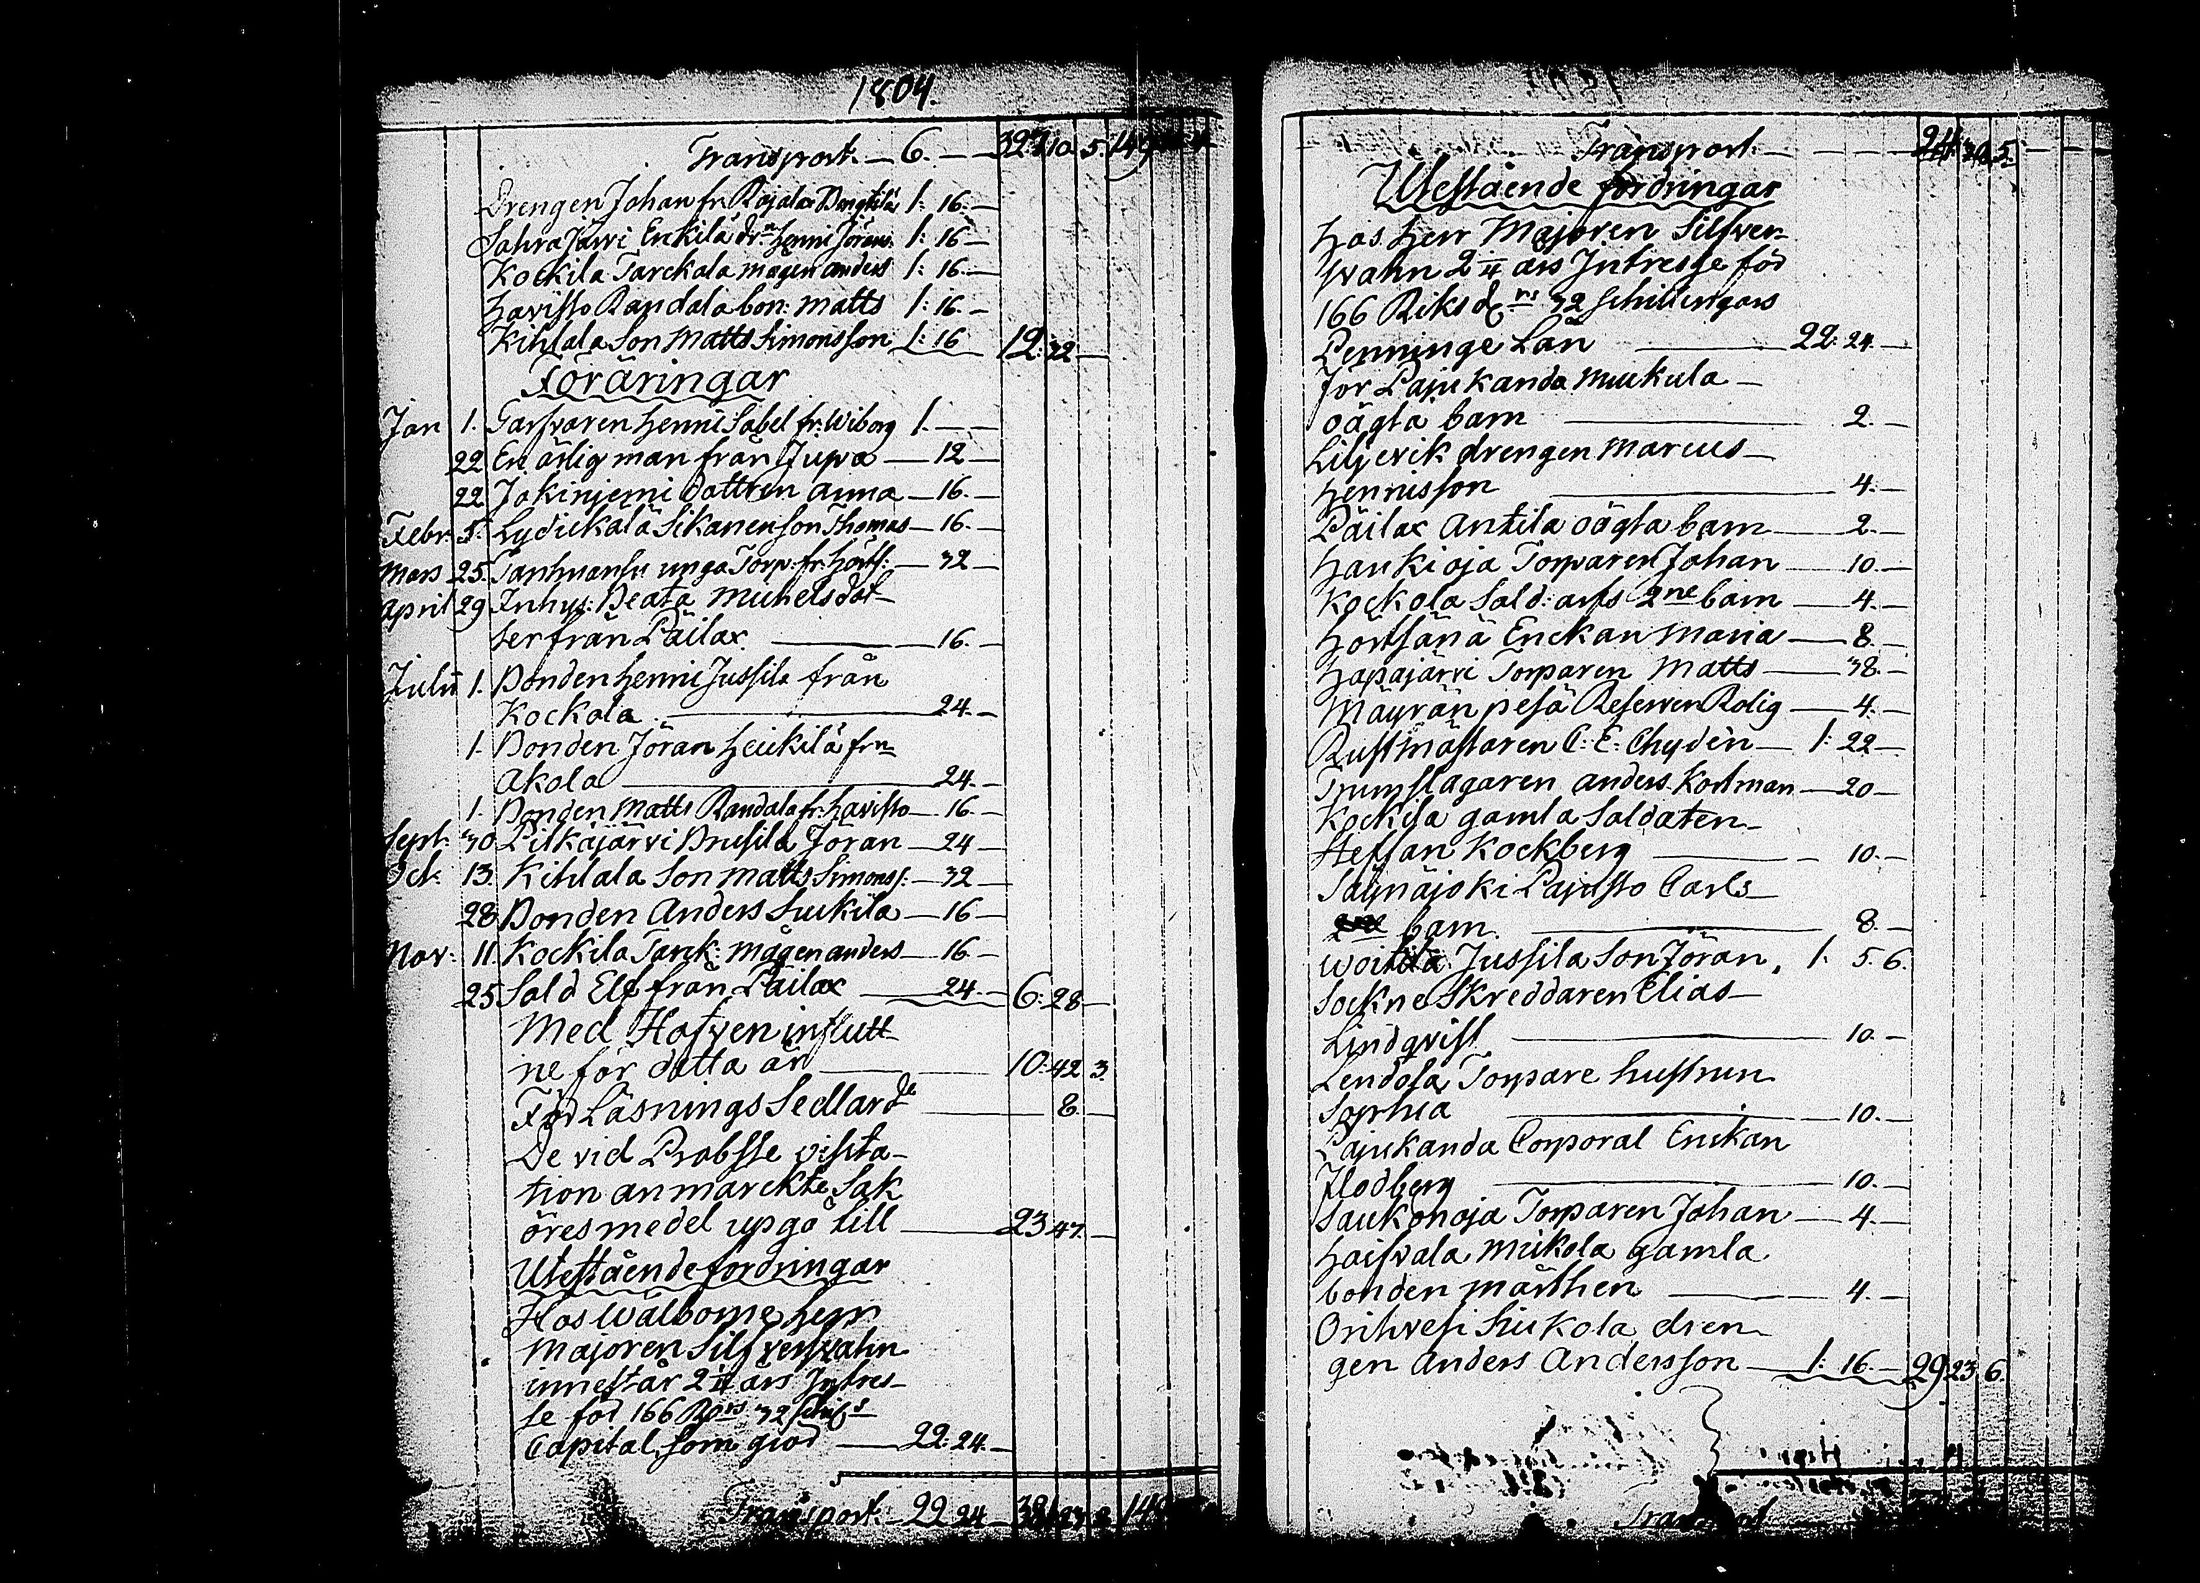 1804.
Transport. — 6. — — 327. 10. 5. 149
Drengen Johan fr. Rajalax Bengtilä 1: 16. —
Enkilä dr:n Henni Jörans. 1: 16 —
Kockila Tarckala mågen anders 1: 16. —
Havisto Randala bon: Matts 1: 16. —
Kihlala Son Matts Simonsson 1: 16 12: 32 —
Föräringar
Jan 1. Garfvaren Henni Sabel fr: Wiborg 1. — —
22 En ärlig man från — 12 —
22 dottren Anna — 16. —
Febr: 5. Sikanen son Thomas — 16. —
Mars 25. unga Torp: fr. — 32 —
April 29 Inhys: Beata Michelsdot-
ter från Päilax — 16. —
Julii 1. Bonden Henni Jussila från
Kockola. — 24. —
1. Bonden Jöran Heickilä frn
Akola — 24. —
1. Bonden Matts Randala fr: Havisto — 16. —
Sept: 30. Pitkäjärvi Jöran — 24 —
Oct: 13. Kihlala Son Matts Simons: — 32 —
28 Bonden Anders — 16 —
Nov: 11. Kockila Tarck: mågen anders — 16. —
25 Sold Elg från Päilax — 24. — 6: 28 —
Med Hofven influtt-
ne för detta år — 10: 42 3.
För Läsnings Sedlar — 8. —
De vid Probsse visita-
tion anmarckte Sak
öresmedel upgå till — 23 47. —
Utestående fordringar
Hos Wälborne Herr
Majoren Silfversvahn
innestår 2 års Intres-
se för 166 32
Capital, som giör — 22: 24. —
Transport — 22 24 — 381 23. 149
Transport. — — — 5. — —
Utestående fordringar
Hos Herr Majoren Silfver-
svahn 2 års Intresse för
166 Riksd 32 Schillingars
Penninge Lån — 22: 24. —
för Pajukanda Muckula —
oägta barn — 2. —
drengen Marcus —
Hennisson — 4. —
Päilax Antila oägta barn — 2. —
Haukioja Torparen Johan — 10. —
Kockola Sold: arfs 2ne barn — 4. —
Hörtsänä Enckan Maria — 8. —
Hapajärvi Torparen Matts — 38. —
Mäyränpesä Reserven Rolig — 4. —
Rustmästaren C: E: Chydèn — 1: 22 —
Trumslagaren anders. Kortman — 20 —
Kockila gamla Soldaten —
Steffan Kockberg — 10. —
Säynäjoki Pajusto Carls —
barn. — 8. —
Jussila Son Jöran, 1. 5. 6.
Sockne Skreddaren Elias —
Lindqvist — 10. —
Torpare hustrun
Sophia — 10. —
Pajukanda Corporal Enckan
Flodberg — 10. —
Saukonoja Torparen Johan — 4. —
Mickola gamla
bonden Mårthen — 4. —
Orihvesi dren-
gen Anders Andersson — 1: 16. — 29 23 6.